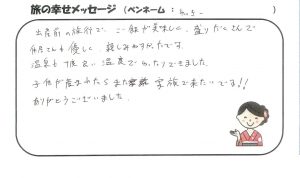 旅の幸せメッセージ (ペンネーム：            )
出産前の旅行で、ご飯が美味しく、盛りだくさんで
仲居さんも優しく、親しみやすかったです。
温泉も丁度いい温度でゆったりできました。
子供が産まれたらまた 家族で来たいです!!
ありがとうございました。